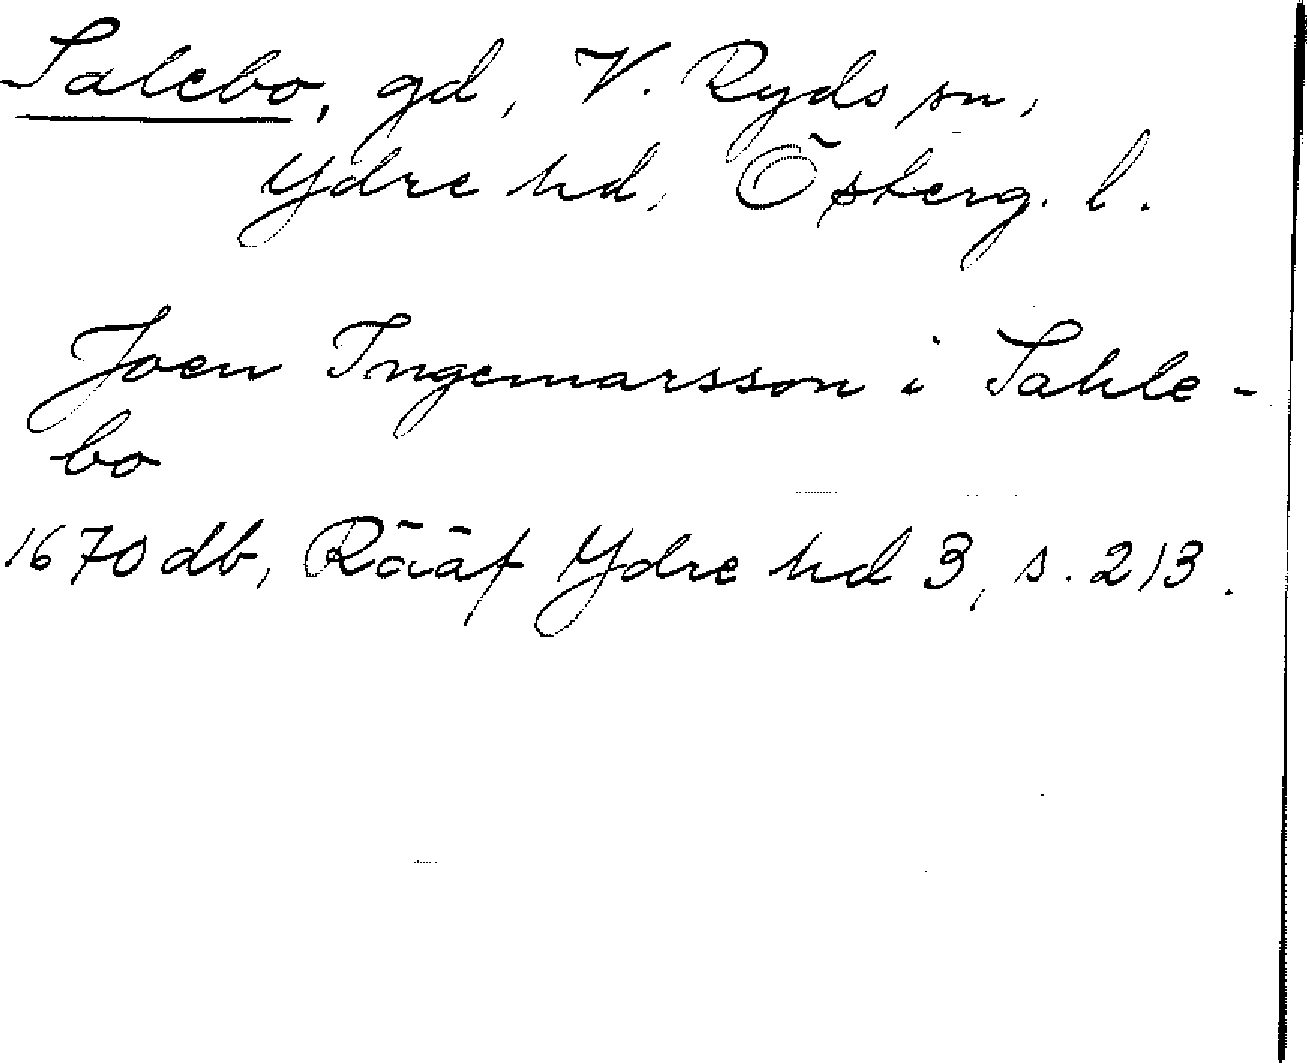 Salebo, gd, V. Ryds sn,
Ydre hd, Österg. l.
Joen Ingemarsson i Sahle-
bo
1670 db, Rääf Ydre hd 3, s. 213.